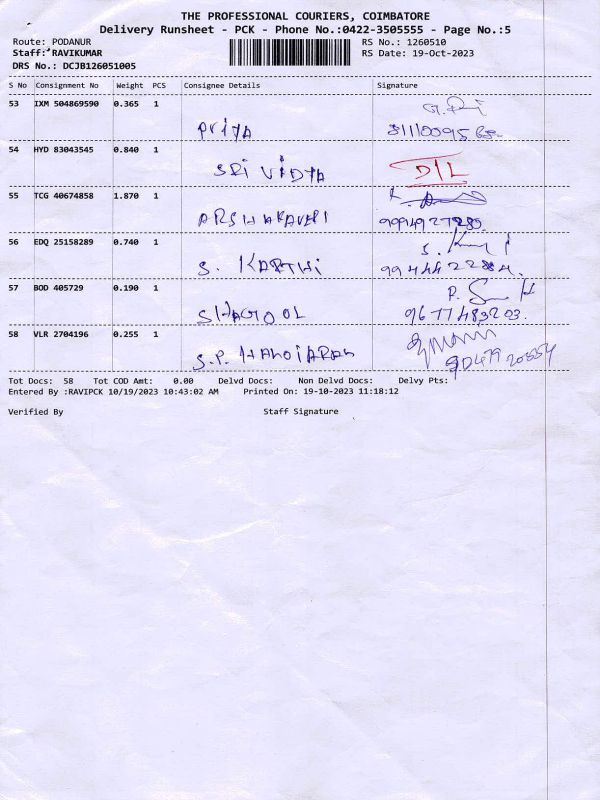 THE PROFESSIONAL COURIERS, COIMBATORE
Delivery Runsheet - PCK - Phone No.:0422-3505555 - Page No.:5
Route: PODANUR RS No.: 1260510
Staff: RAVIKUMAR RS Date: 19-Oct-2023
DRS No.: DCJB126051005
S No Consignment No Weight PCS Consignee Details Signature
53 IXM 504869590 0.365 1
PRIYA
54 HYD 83043545 0.840 1
SRI VIDYA D/L
55 TCG 40674858 1.870 1
56 EDQ 25158289 0.740 1
S. KARTHI
57 BOD 405729 0.190 1
58 VLR 2704196 0.255 1
S.P.
Tot Docs: 58 Tot COD Amt: 0.00 Delvd Docs: Non Delvd Docs: Delvy Pts:
Entered By :RAVIPCK 10/19/2023 10:43:02 AM Printed On: 19-10-2023 11:18:12
Verified By Staff Signature